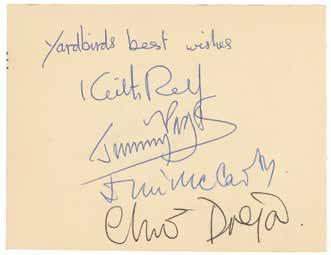 Yardbirds best wishes
Keith Relf
Jimmy Page
Jim McCarty
Chris Dreja